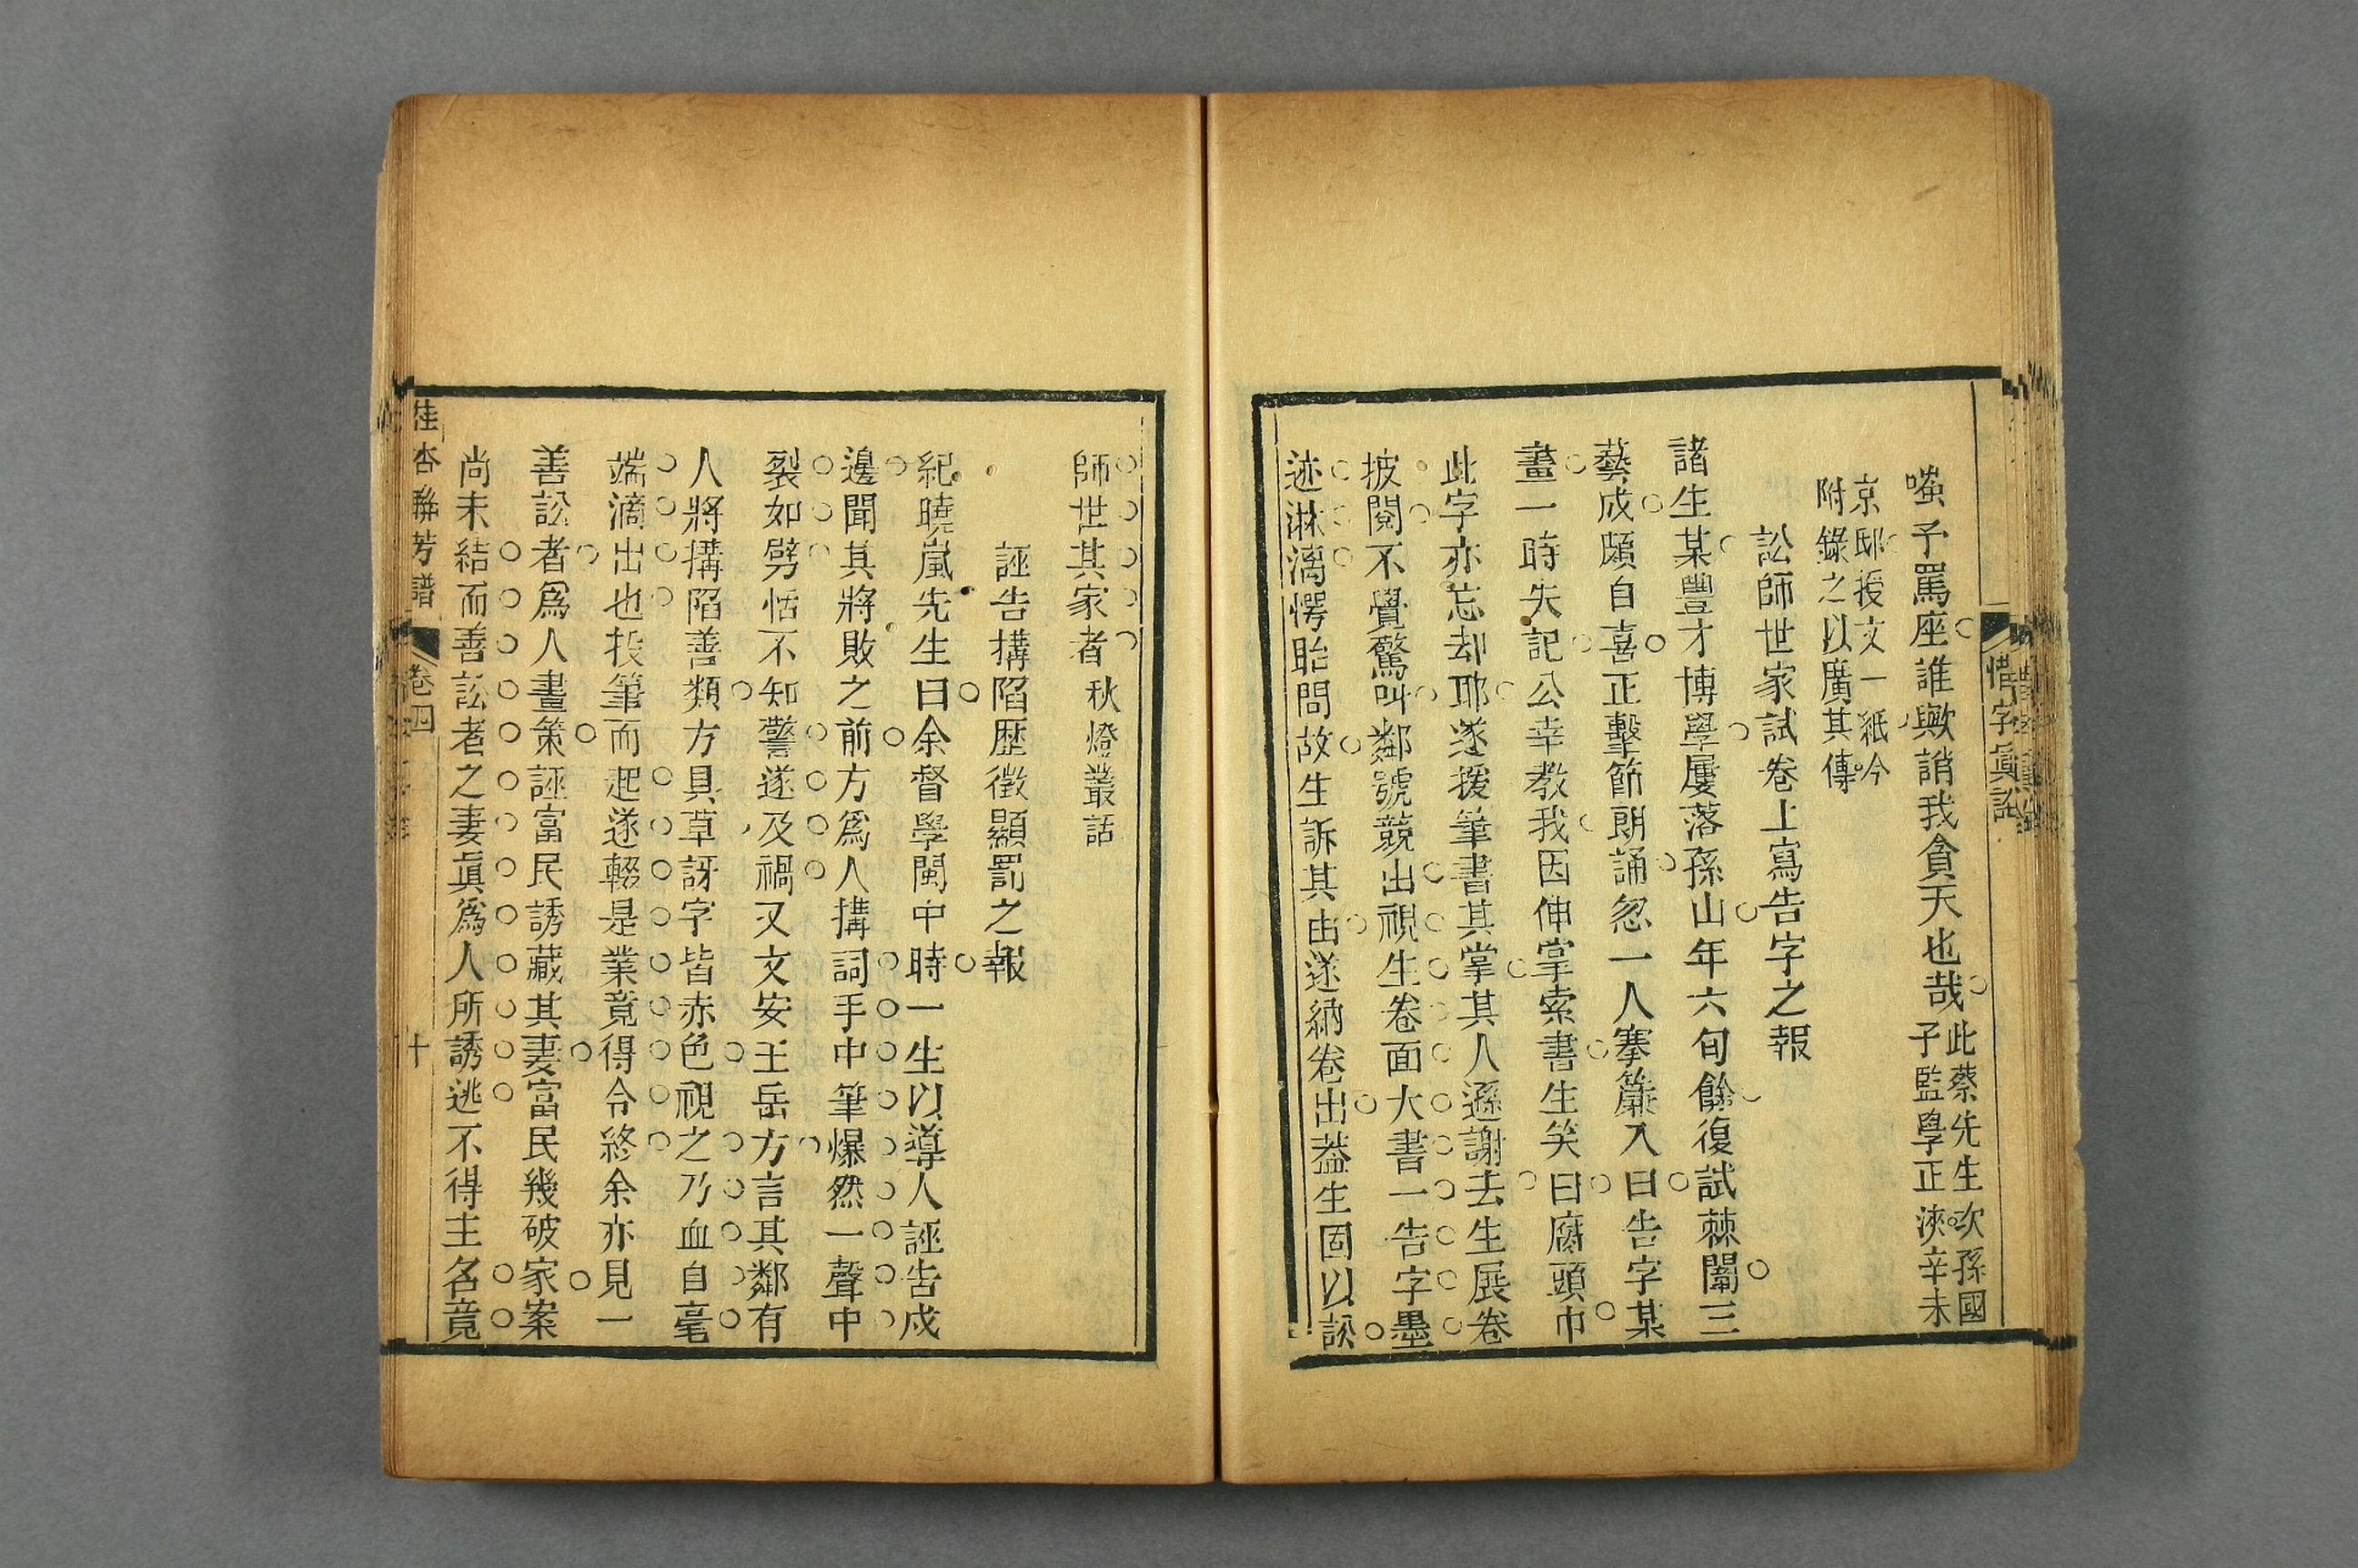 嗤予罵座誰歟誚我貪天也哉此蔡先生次孫國
子監學正浹辛未
京邸授文一紙今
附錄之以廣其傳
訟師世家試卷上寫告字之報
諸生某豐才博學屢落孫山年六旬餘復試棘闈三
藝成頗自喜正擊節朗誦忽一人搴簾入曰告字某
畫一時失記公幸教我因伸掌索書生笑曰腐頭巾
此字亦忘却耶遂援筆書其掌其人遜謝去生展卷
披閱不覺驚叫鄰號競出視生卷面大書一告字墨
迹淋漓愕眙問故生訴其由遂納卷出葢生固以訟
惜字真詮
師世其家者秋燈叢話
誣告搆陷歷徵顯罰之報
紀曉嵐先生曰余督學閩中時一生以導人誣告戍
邊聞其將敗之前方爲人搆詞手中筆爆然一聲中
裂如劈恬不知警遂及禍又文安王岳方言其鄰有
人將搆陷善類方具草訝字皆赤色視之乃血自毫
端滴出也投筆而起遂輟是業竟得令終余亦見一
善訟者爲人畫策誣富民誘藏其妻富民幾破家案
尚未結而善訟者之妻眞爲人所誘逃不得主名竟
桂杏聯芳譜
卷四
十